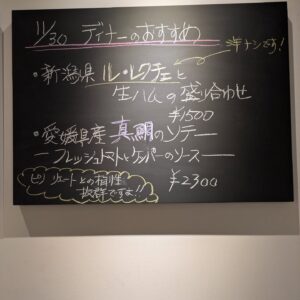 11/30 ディナーのおすすめ
洋ナシです!
・新潟県 ル・レクチェと
生ハムの盛り合わせ
¥1500
・愛媛県産 真鯛のソテー
ーフレッシュトマトとケッパーのソースー
¥2300
ピノ
リュートとの相性
抜群ですよ!!